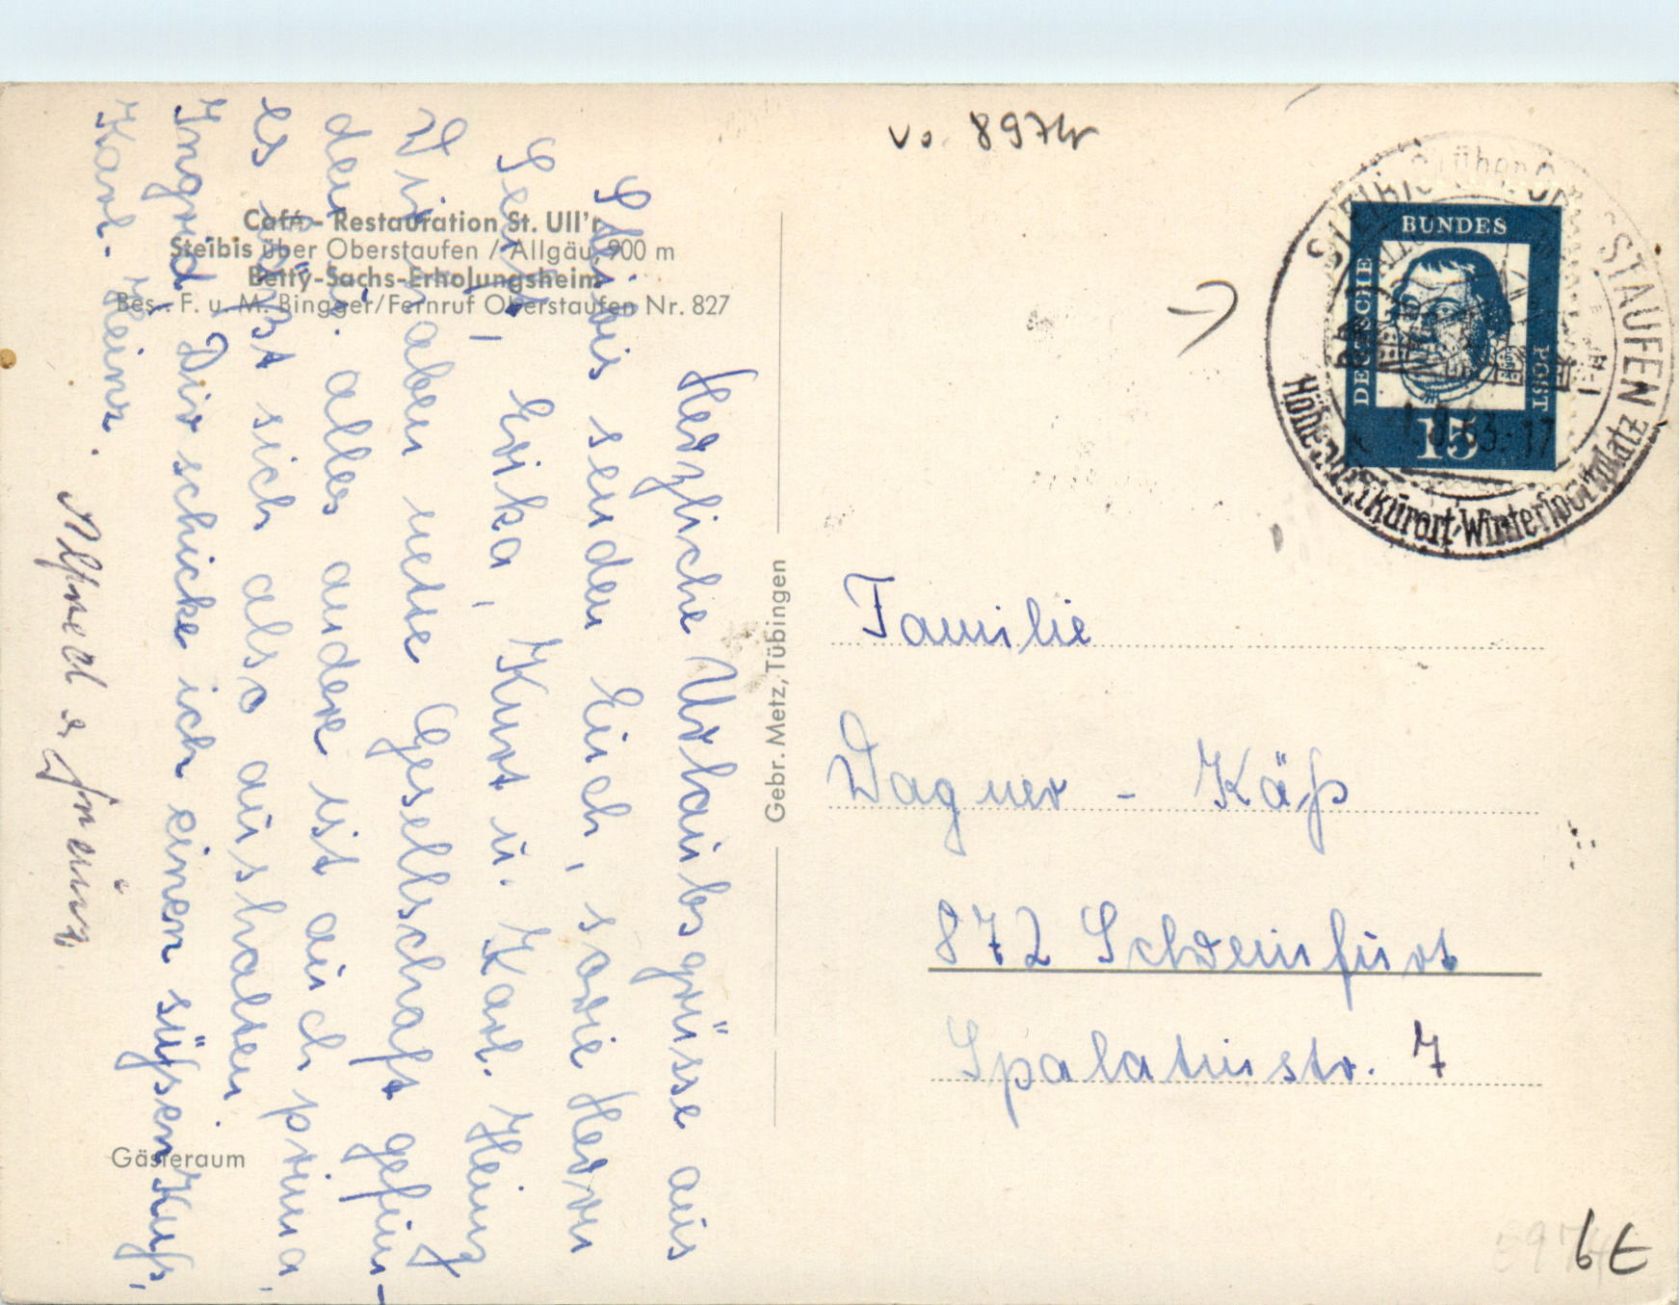 Café - Restauration St. Ull'r
Steibis über Oberstaufen / Allgäu, 900 m
Betty-Sachs-Erholungsheim
Bes.: F. u. M. Bingger/Fernruf Oberstaufen Nr. 827
Herzliche Urlaubsgrüsse aus
Steibis senden Euch, sowie Herrn
Seitz, Erika, Kurt u. Karl-Heinz
Wir haben nette Gesellschaft gefun-
den. alles andere ist auch prima,
es läßt sich also aushalten
Ingrid, Dir schicke ich einen süßen Kuß,
Karl-Heinz.
Alfred
Gästeraum
Gebr. Metz, Tübingen
DEUTSCHE
BUNDES
POST
15
STAUFEN
Höhenluftkurort-Wintersportplatz
Familie
Wagner - Käß
872 Schweinfurt
Spalatinstr. 7